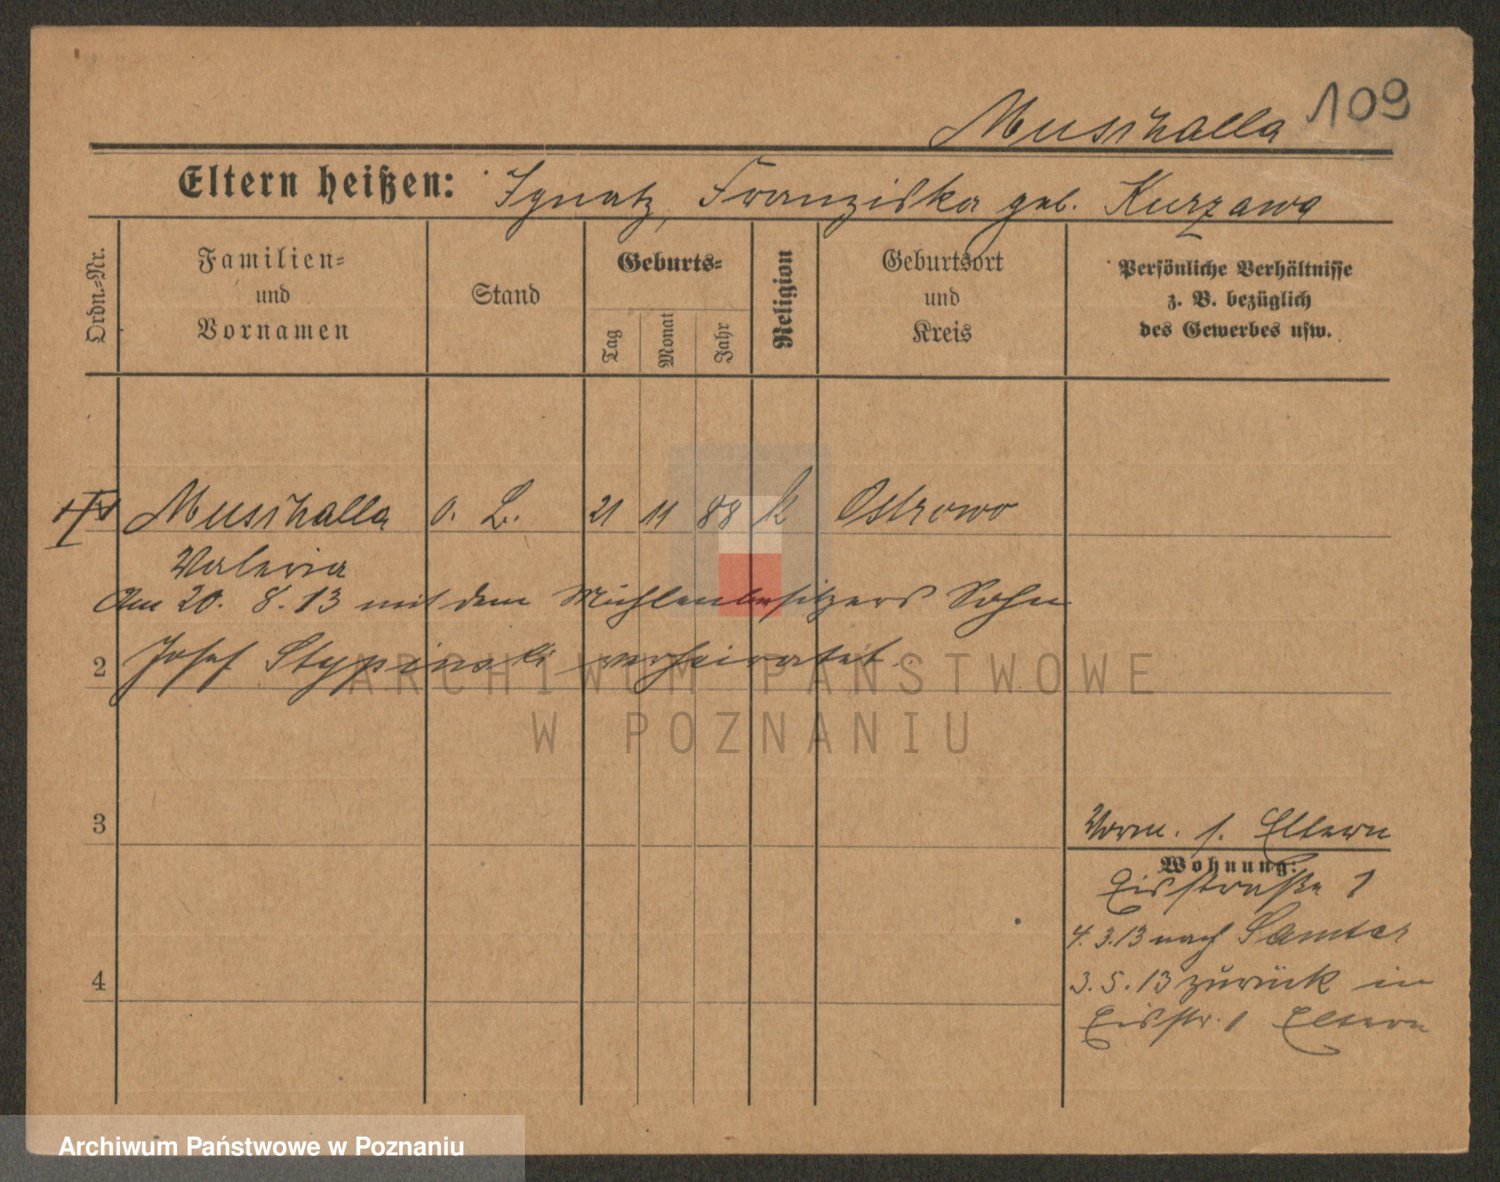 Musihalla 109
Eltern heißen: Ignatz, Franziska geb. Kurzawa
Ordn.-Nr.
Familien-
und
Vornamen
Stand
Geburts-
Tag
Monat
Jahr
Religion
Geburtsort
und
Kreis
Persönliche Verhältnisse
z. B. bezüglich
des Gewerbes usw.
Musihalla o. B. 21 11 88 k Ostrowo
Valeria
Am 20. 8. 13 mit dem Mühlenbesitzers Sohn
2 Josef Stypinski verheiratet
ARCHIWUM PAŃSTWOWE
W POZNANIU
3
Vorm. s. Eltern
Wohnung:
Eisstraße 1
4. 3. 13 nach Samter
4
3. 5. 13 zurück in
Eisstr. 1 Eltern
Archiwum Państwowe w Poznaniu